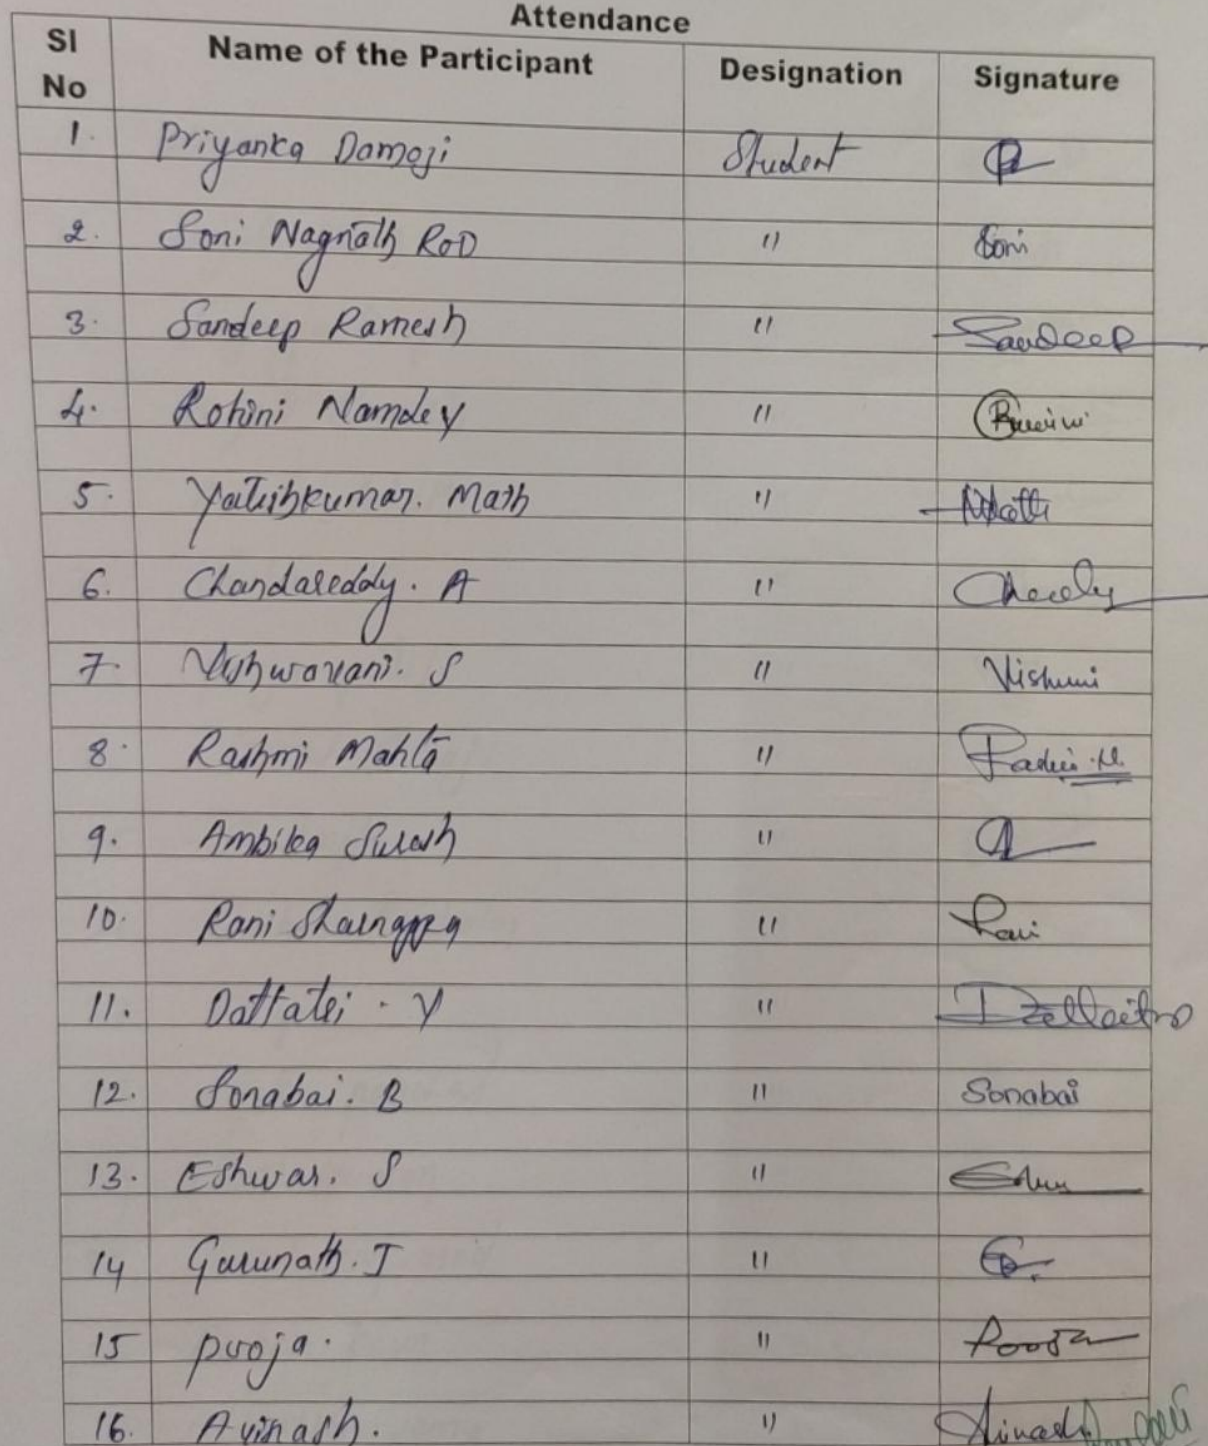 Attendance
Sl No Name of the Participant Designation Signature
1. Priyanka Damoji Student
2. Soni Nagnath RoD " Soni
3. Sandeep Ramesh " Sandeep
4. Rohini Namdev "
5. Yatishkumar. Math "
6. Chandareddy. A "
7. Vishwavani. S "
8. Rashmi Mahta "
9. Ambika Suresh "
10. Rani "
11. Dattatri - Y "
12. Sonabai. B " Sonabai
13. Eshwar. S "
14 Gurunath. J "
15 pooja. " Pooja
16. Avinash. " Avinash